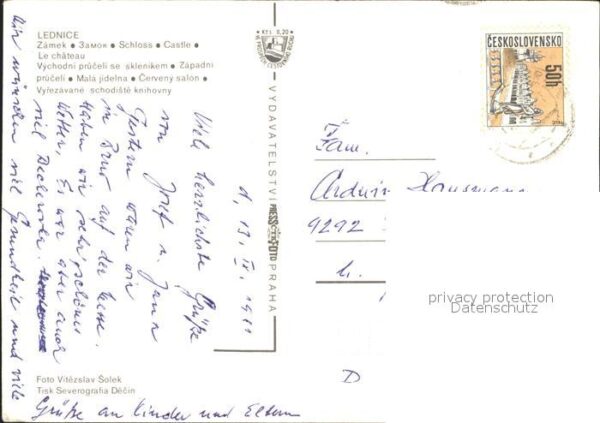 LEDNICE
Zámek ● Замок ● Schloss ● Castle ●
Le château
Východní průčelí se skleníkem ● Západní
průčelí ● Malá jídelna ● Červený salon ●
Vyřezávané schodiště knihovny
Kčs 0,20
VYDAVATELSTVÍ PRESSFOTO PRAHA
ČESKOSLOVENSKO
50h
d. 13. IX.
Viele herzlichste Grüße
von Josef u.
Gestern waren wir
in Brno auf der Messe.
Haben wir sehr schönes
Wetter. Es war aber auch
viel
Wir wünschen viel Gesundheit und viele
Grüße an Kinder und Eltern
Fam.
Hausmann
9292
D
privacy protection
Datenschutz
Foto Vítězslav Šolek
Tisk Severografia Děčín